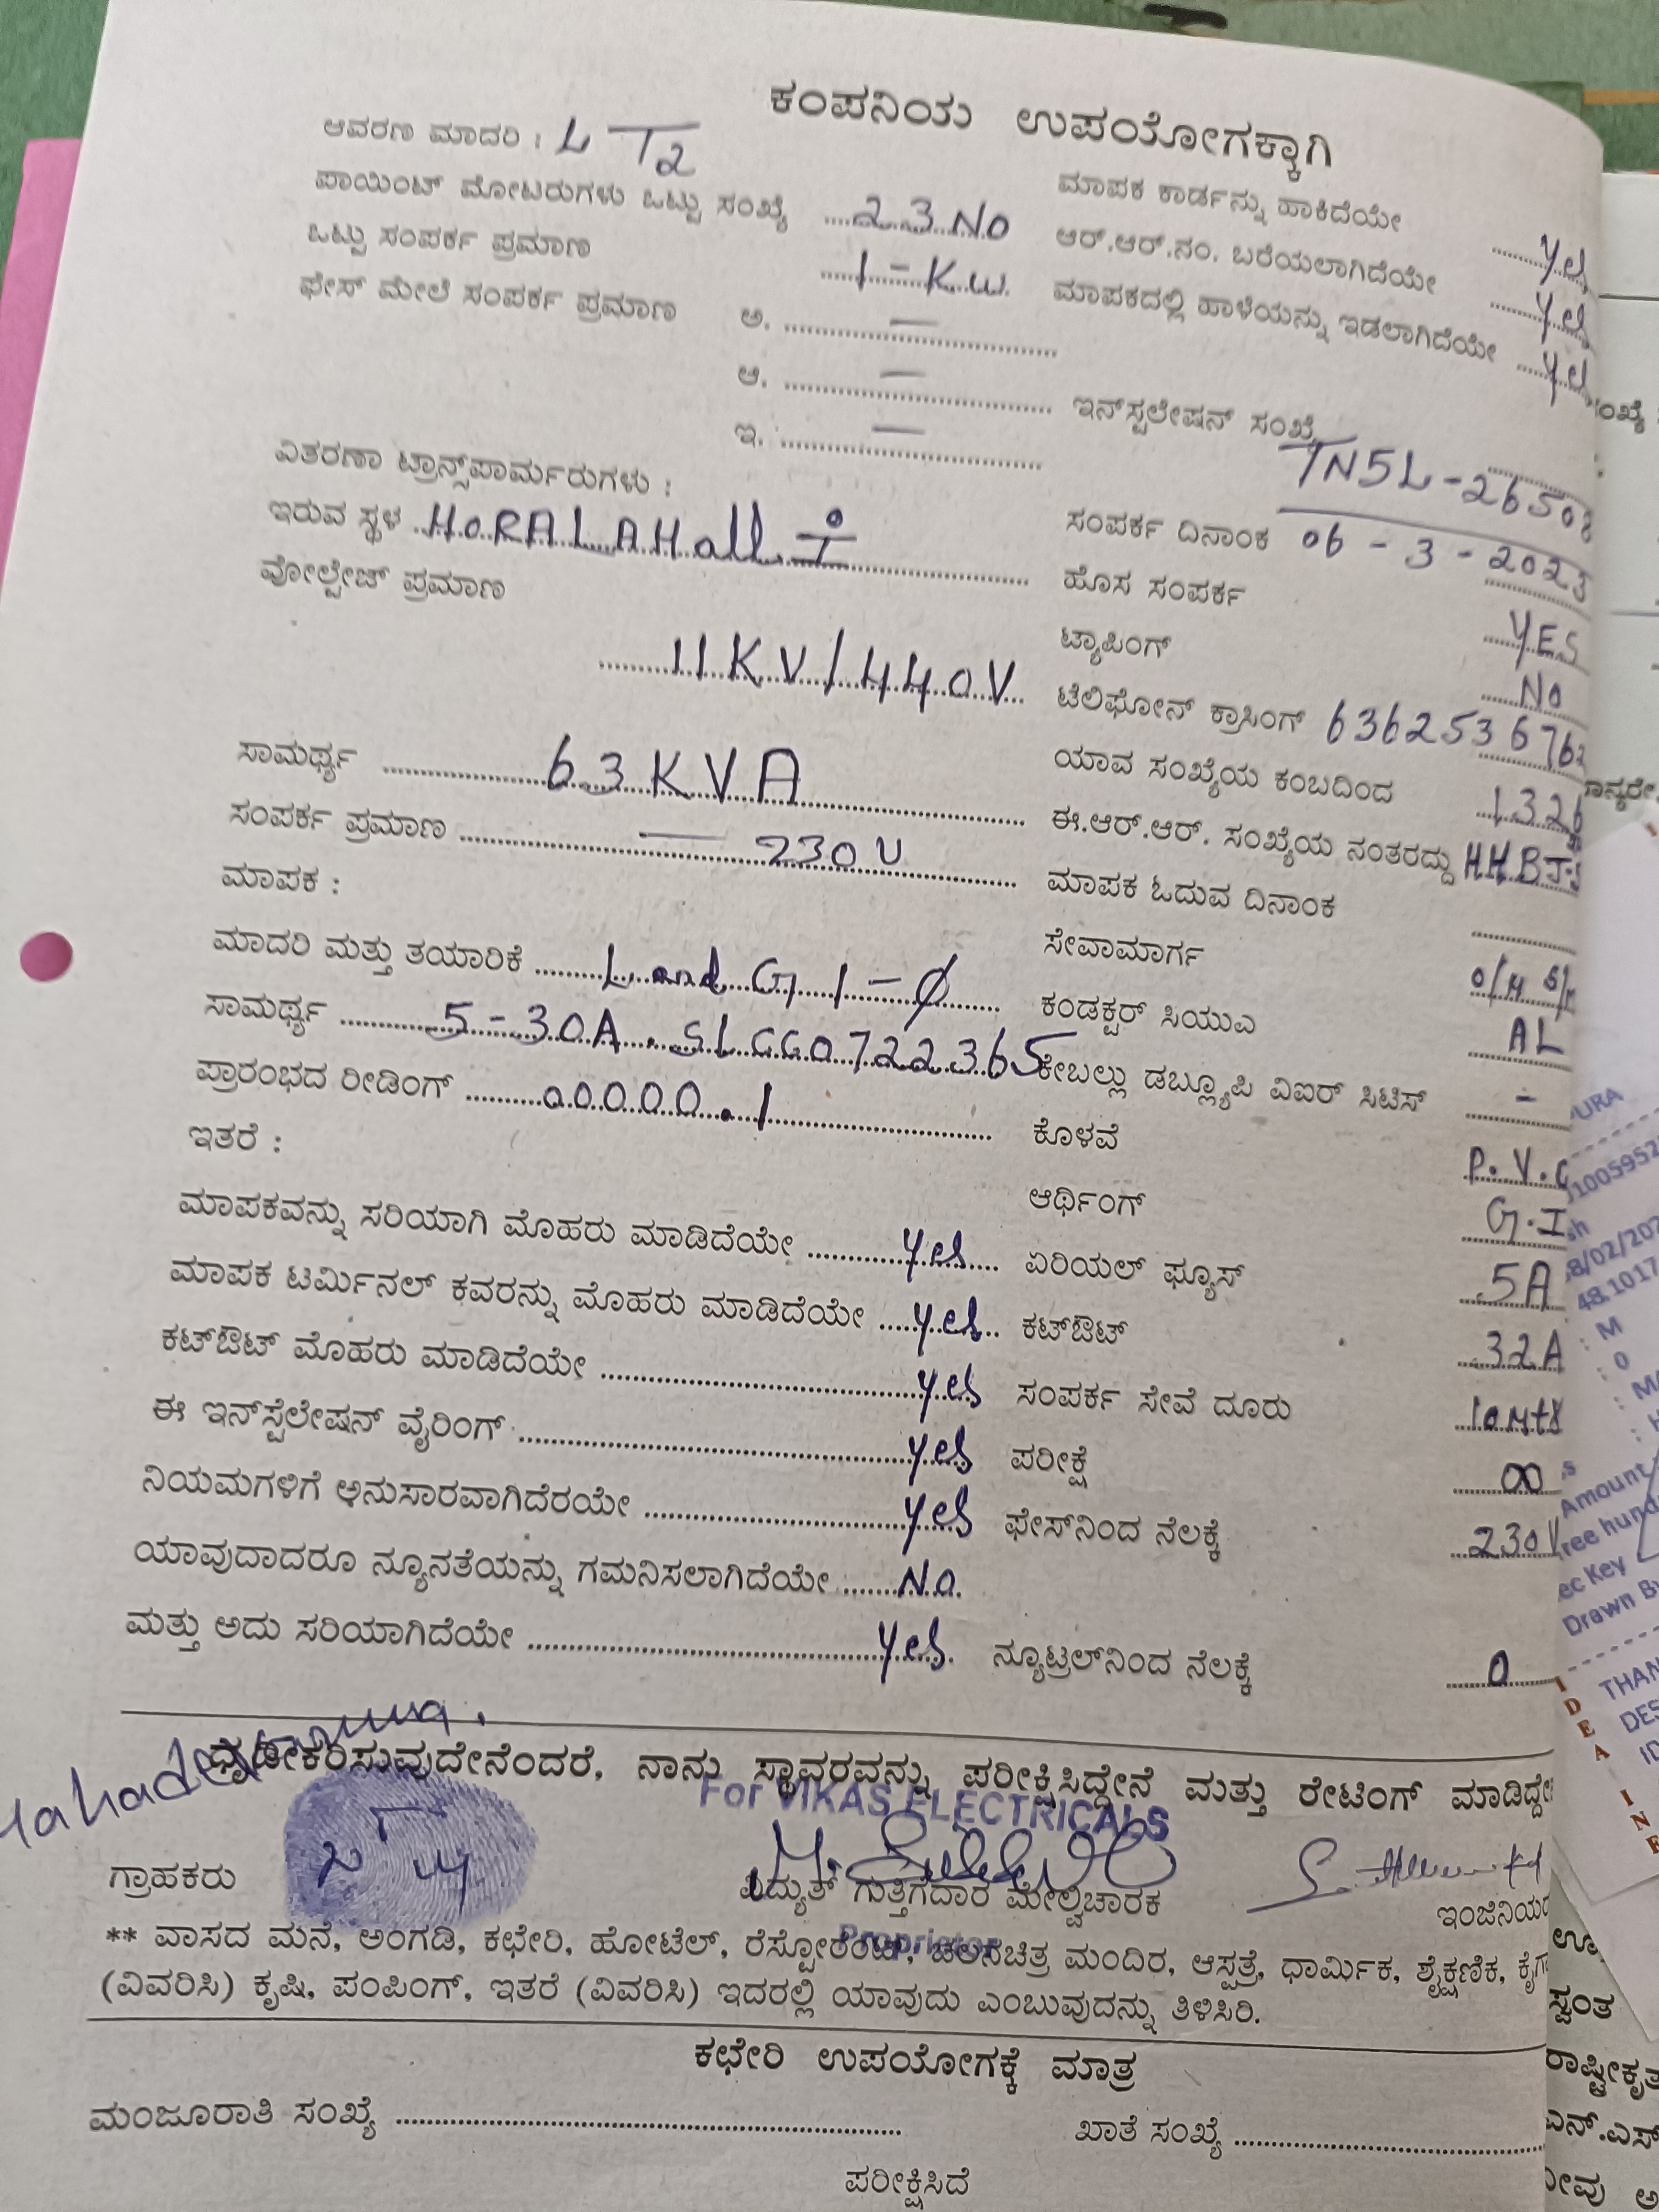 ಕಂಪನಿಯ ಉಪಯೋಗಕ್ಕಾಗಿ
ಆವರಣ ಮಾದರಿ : LT2
ಪಾಯಿಂಟ್ ಮೋಟರುಗಳು ಒಟ್ಟು ಸಂಖ್ಯೆ ....23 No
ಒಟ್ಟು ಸಂಪರ್ಕ ಪ್ರಮಾಣ ....1 - K.W.
ಫೇಸ್ ಮೇಲೆ ಸಂಪರ್ಕ ಪ್ರಮಾಣ ಅ. .... —
ಆ. .... —
ಇ. .... —
ವಿತರಣಾ ಟ್ರಾನ್ಸ್‌ಪಾರ್ಮರುಗಳು :
ಇರುವ ಸ್ಥಳ ..HORALAHalli
ವೋಲ್ಟೇಜ್ ಪ್ರಮಾಣ
....11KV/440V...
ಸಾಮರ್ಥ್ಯ .... 63 KVA
ಸಂಪರ್ಕ ಪ್ರಮಾಣ .... — 230V
ಮಾಪಕ :
ಮಾದರಿ ಮತ್ತು ತಯಾರಿಕೆ .... L and G 1-Ø
ಸಾಮರ್ಥ್ಯ .... 5-30A. SLGG0722365
ಪ್ರಾರಂಭದ ರೀಡಿಂಗ್ .... 00000.1
ಇತರೆ :
ಮಾಪಕವನ್ನು ಸರಿಯಾಗಿ ಮೊಹರು ಮಾಡಿದೆಯೇ .... yes
ಮಾಪಕ ಟರ್ಮಿನಲ್ ಕವರನ್ನು ಮೊಹರು ಮಾಡಿದೆಯೇ .... yes
ಕಟ್‌ಔಟ್ ಮೊಹರು ಮಾಡಿದೆಯೇ .... yes
ಈ ಇನ್‌ಸ್ಟೆಲೇಷನ್ ವೈರಿಂಗ್ .... yes
ನಿಯಮಗಳಿಗೆ ಅನುಸಾರವಾಗಿದೆರಯೇ .... yes
ಯಾವುದಾದರೂ ನ್ಯೂನತೆಯನ್ನು ಗಮನಿಸಲಾಗಿದೆಯೇ .... No.
ಮತ್ತು ಅದು ಸರಿಯಾಗಿದೆಯೇ .... yes.
ಮಾಪಕ ಕಾರ್ಡನ್ನು ಹಾಕಿದೆಯೇ .... yes
ಆರ್.ಆರ್.ನಂ. ಬರೆಯಲಾಗಿದೆಯೇ .... yes
ಮಾಪಕದಲ್ಲಿ ಹಾಳೆಯನ್ನು ಇಡಲಾಗಿದೆಯೇ .... yes
ಇನ್‌ಸ್ಟಲೇಷನ್ ಸಂಖ್ಯೆ TNSL-26508
ಸಂಪರ್ಕ ದಿನಾಂಕ 06-3-2023
ಹೊಸ ಸಂಪರ್ಕ .... YES
ಟ್ಯಾಪಿಂಗ್ .... No
ಟೆಲಿಫೋನ್ ಕ್ರಾಸಿಂಗ್ 636253676
ಯಾವ ಸಂಖ್ಯೆಯ ಕಂಬದಿಂದ .... 1326
ಈ.ಆರ್.ಆರ್. ಸಂಖ್ಯೆಯ ನಂತರದ್ದು HHBJ
ಮಾಪಕ ಓದುವ ದಿನಾಂಕ ....
ಸೇವಾಮಾರ್ಗ O/H
ಕಂಡಕ್ಟರ್ ಸಿಯುಎ AL
ಕೇಬಲ್ಲು ಡಬ್ಲ್ಯೂಪಿ ವಿಐರ್ ಸಿಟಿಸ್ .... -
ಕೊಳವೆ P.V.C
ಆರ್ಥಿಂಗ್ G.I
ಏರಿಯಲ್ ಫ್ಯೂಸ್ 5A
ಕಟ್‌ಔಟ್ 32A
ಸಂಪರ್ಕ ಸೇವೆ ದೂರು 10
ಪರೀಕ್ಷೆ ∞
ಫೇಸ್‌ನಿಂದ ನೆಲಕ್ಕೆ 230V
ನ್ಯೂಟ್ರಲ್‌ನಿಂದ ನೆಲಕ್ಕೆ 0
ಧೃಡೀಕರಿಸುವುದೇನೆಂದರೆ, ನಾನು ಸ್ಥಾವರವನ್ನು ಪರೀಕ್ಷಿಸಿದ್ದೇನೆ ಮತ್ತು ರೇಟಿಂಗ್ ಮಾಡಿದ್ದೇ
For VIKAS ELECTRICALS
ಗ್ರಾಹಕರು ವಿದ್ಯುತ್ ಗುತ್ತಿಗೆದಾರ ಮೇಲ್ವಿಚಾರಕ ಇಂಜಿನಿಯ
Proprietor
** ವಾಸದ ಮನೆ, ಅಂಗಡಿ, ಕಛೇರಿ, ಹೋಟೆಲ್, ರೆಸ್ಟೋರೆಂಟ್, ಚಲನಚಿತ್ರ ಮಂದಿರ, ಆಸ್ಪತ್ರೆ, ಧಾರ್ಮಿಕ, ಶೈಕ್ಷಣಿಕ, ಕೈಗಾ
(ವಿವರಿಸಿ) ಕೃಷಿ, ಪಂಪಿಂಗ್, ಇತರೆ (ವಿವರಿಸಿ) ಇದರಲ್ಲಿ ಯಾವುದು ಎಂಬುವುದನ್ನು ತಿಳಿಸಿರಿ.
ಕಛೇರಿ ಉಪಯೋಗಕ್ಕೆ ಮಾತ್ರ
ಮಂಜೂರಾತಿ ಸಂಖ್ಯೆ .... ಖಾತೆ ಸಂಖ್ಯೆ ....
ಪರೀಕ್ಷಿಸಿದೆ
URA
Amount
Drawn B
THAN
IDEA IN
ಸ್ವಂತ
ರಾಷ್ಟ್ರೀಕೃತ
ಎನ್.ಎಸ್